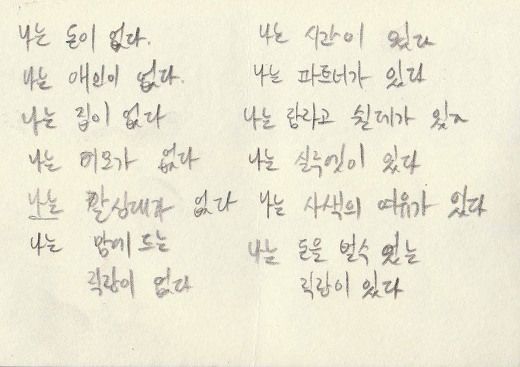 나는 돈이 없다.
나는 애인이 없다.
나는 집이 없다
나는 미모가 없다
나는 말상대가 없다
나는 맘에 드는
직장이 없다
나는 시간이 있다
나는 파트너가 있다
나는 쉴데가 있다
나는 실속있이 있다
나는 사색의 여유가 있다
나는 돈을 벌수 있는
직장이 있다